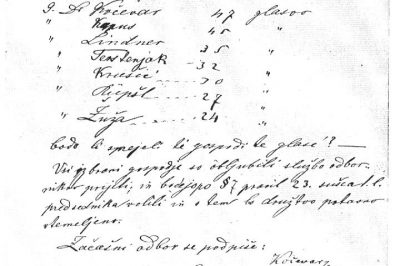 G. Dr. Kočevar 47 glasov
" Kapus 45 "
" Lindner 35 "
" Terstenjak 32 "
" Krušič 30 "
" Ripšl 27 "
" Žuža 24 "
bodo li sprejeli ti gospodi te glase? —
Vsi izbrani gospodje so obljubili službo odbor-
nikov prejeti, in bodejo po §7 pravil 23. sušca t. l.
predsednika volili in s tem to društvo pravno
vtemeljeno.
Začasni odbor se podpiše:
Kočevar